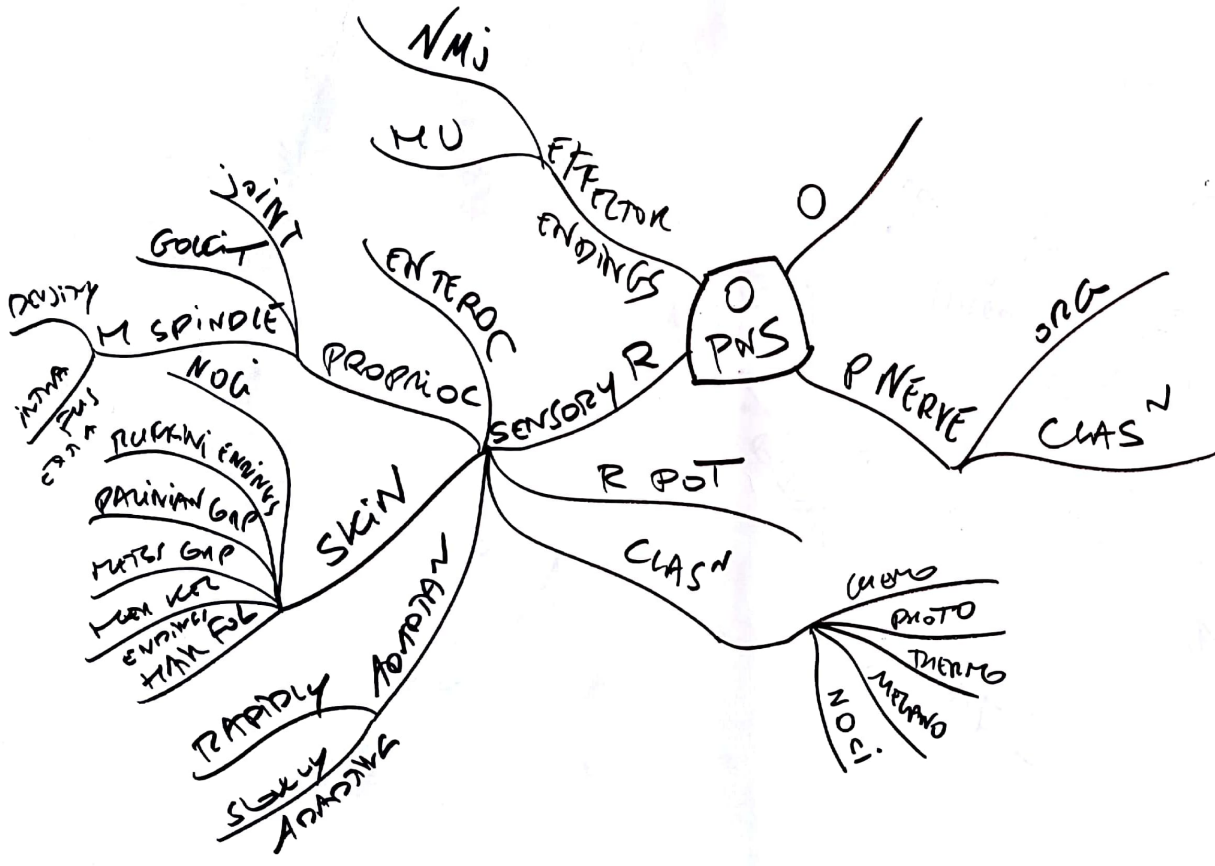 NMj
MU
EFFECTOR
ENDINGS
O
O
PNS
P NERVE
ORG
CLAS^N
SENSORY R
ENTEROC
PROPRIOC
JOINT
GOLGI T
M SPINDLE
DENSITY
INTRA
FUS
SKIN
NOCI
RUFFINI ENDINGS
PACINIAN CORP
MEISS CORP
MERKEL
ENDINGS
HAIR FOL
ADAPTAN
RAPIDLY
SLOWLY
ADAPTING
R POT
CLAS^N
CHEMO
PHOTO
THERMO
MECHANO
NOCI